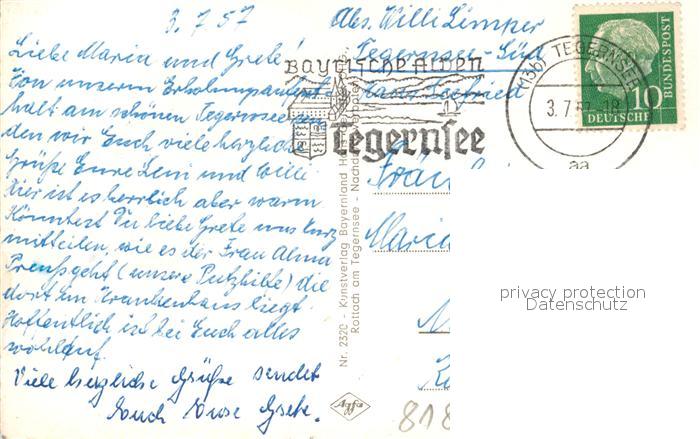 3.7.57
Abs. Willi Limper
Tegernsee-Süd
Haus Seefried
Liebe Maria und Grete!
Von unserem Erholungsaufent
halt am schönen Tegernsee sen
den wir Euch viele herzliche
Grüße Eure Leni und Willi
Hier ist es herrlich aber warm
Könntest Du liebe Grete uns kurz
mitteilen, wie es der Frau Alma
Preuß geht (unsere Putzhilfe) die
dort im Krankenhaus liegt.
Hoffentlich ist bei Euch alles
wohlauf.
Viele herzliche Grüße sendet
Euch Eure Grete.
Bayrische Alpen
Tegernsee
TEGERNSEE
3.7.57-18
aa
DEUTSCHE
BUNDESPOST
10
Nr. 2320 - Kunstverlag Bayernland
Rottach am Tegernsee -
Agfa
Fräu
Maria
818
privacy protection
Datenschutz